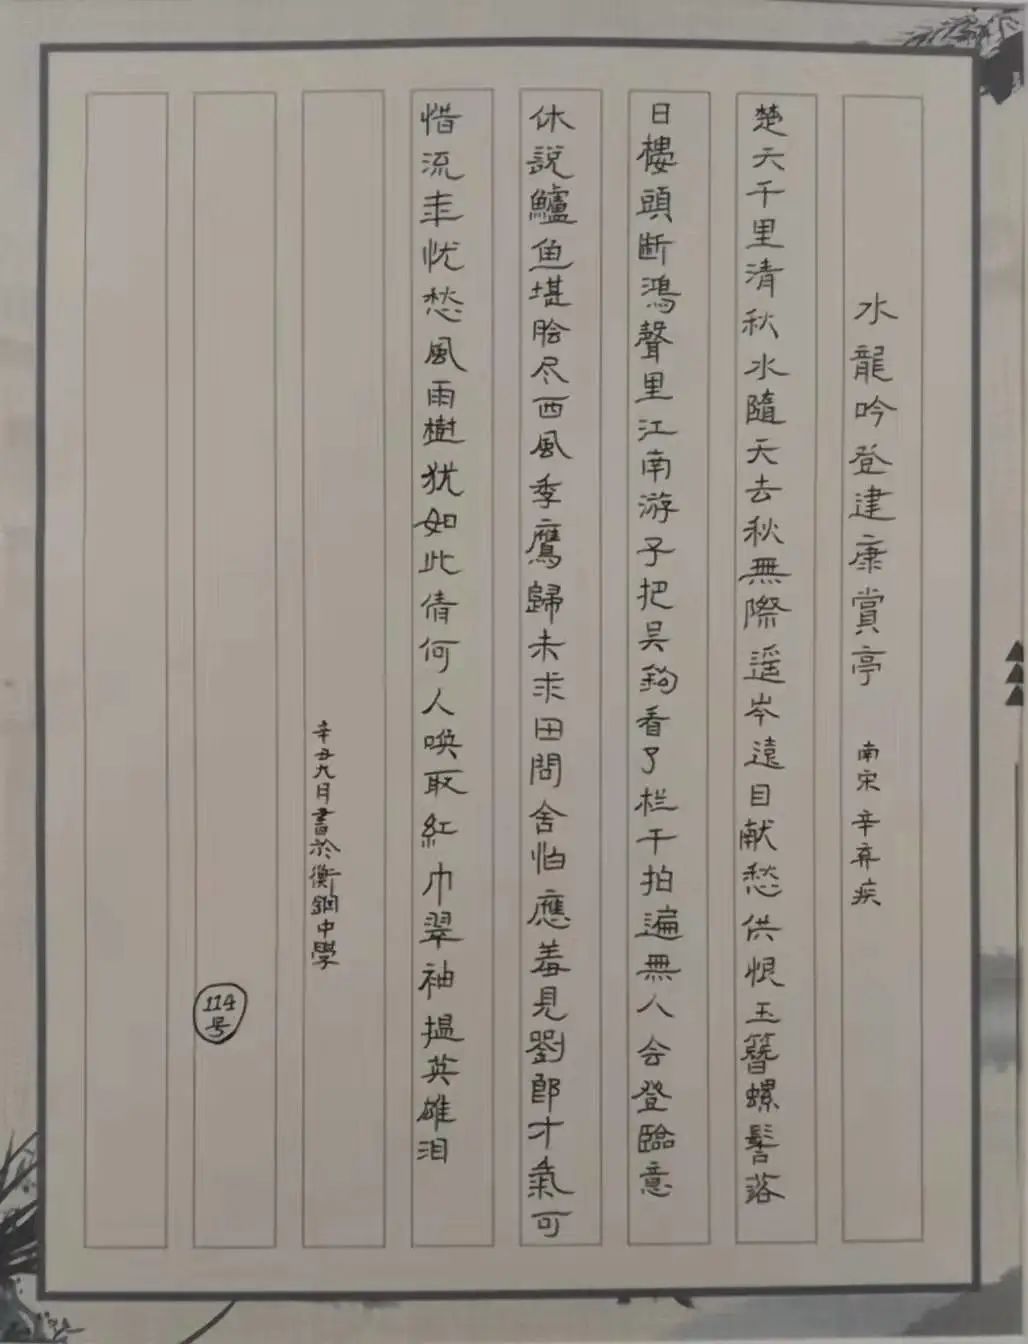 水龍吟登建康賞亭 南宋 辛弃疾
楚天千里清秋水隨天去秋無際遥岑遠目献愁供恨玉簪螺髻落
日樓頭断鴻聲里江南游子把吴鈎看了栏干拍遍無人会登臨意
休說鱸魚堪脍尽西風季鷹歸未求田問舍怕應羞見劉郎才氣可
惜流年忧愁風雨樹犹如此倩何人唤取紅巾翠袖揾英雄泪
辛丑九月書於衡鋼中學
114号